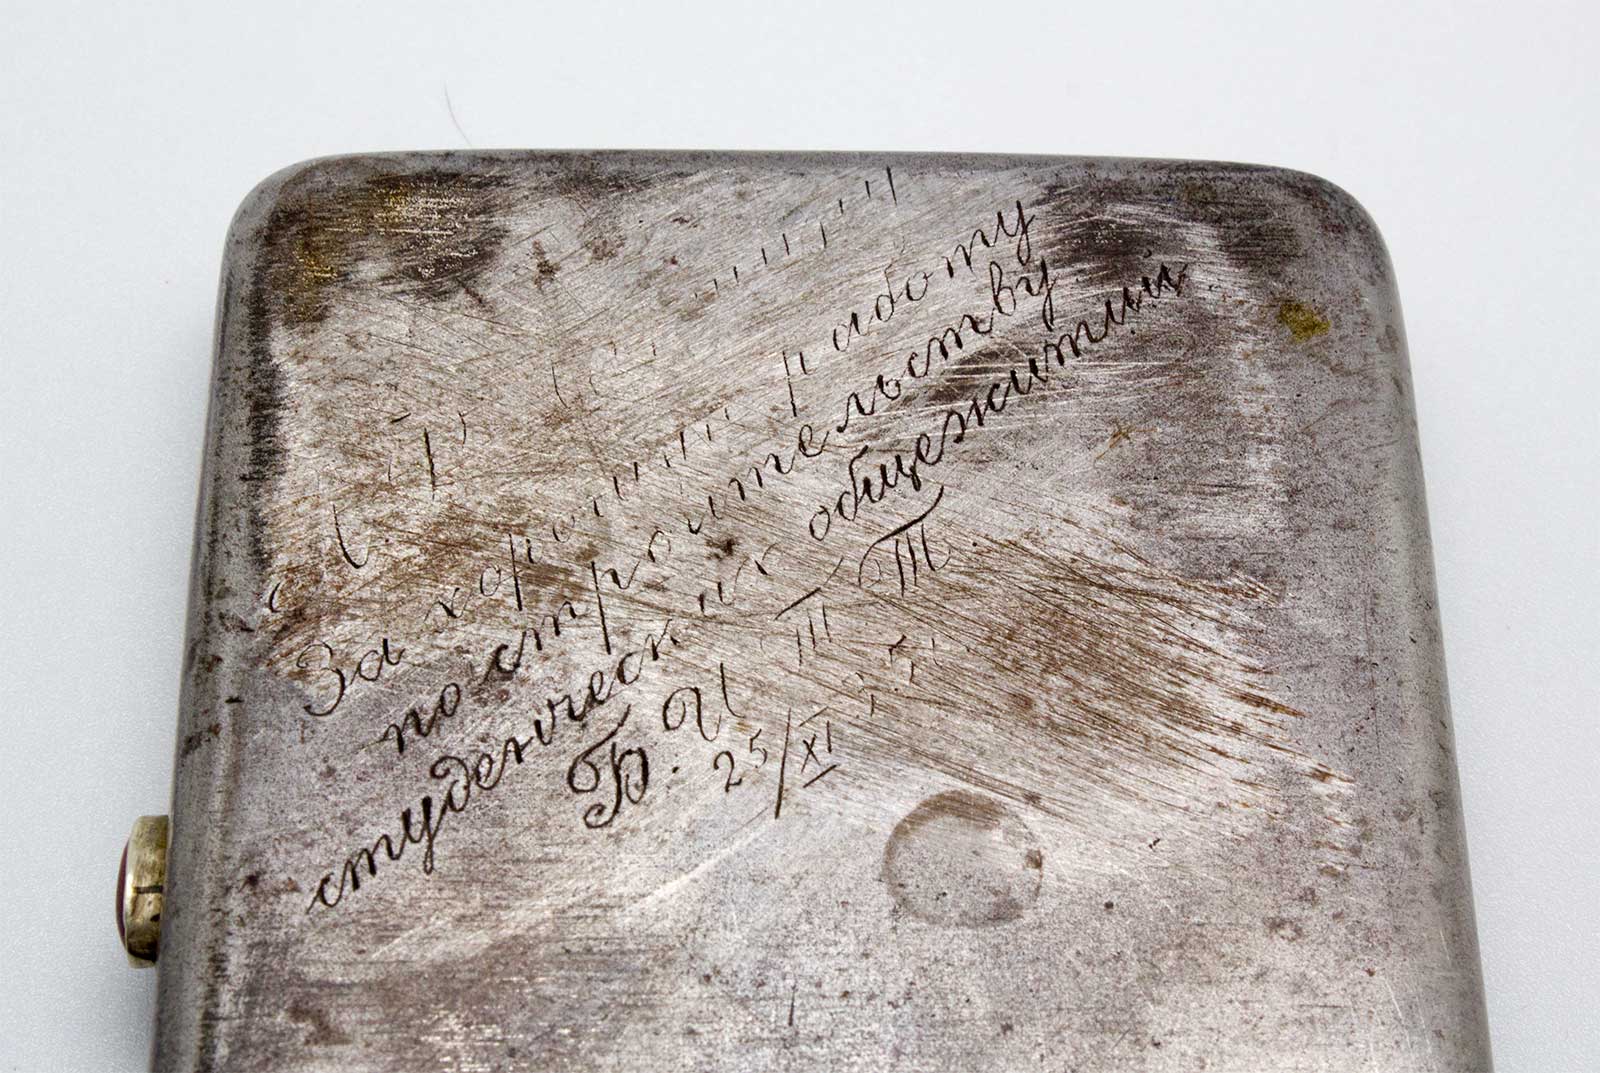 За хорошую работу
по строительству
студенческих общежитий
Б. И Т Т
25/XI